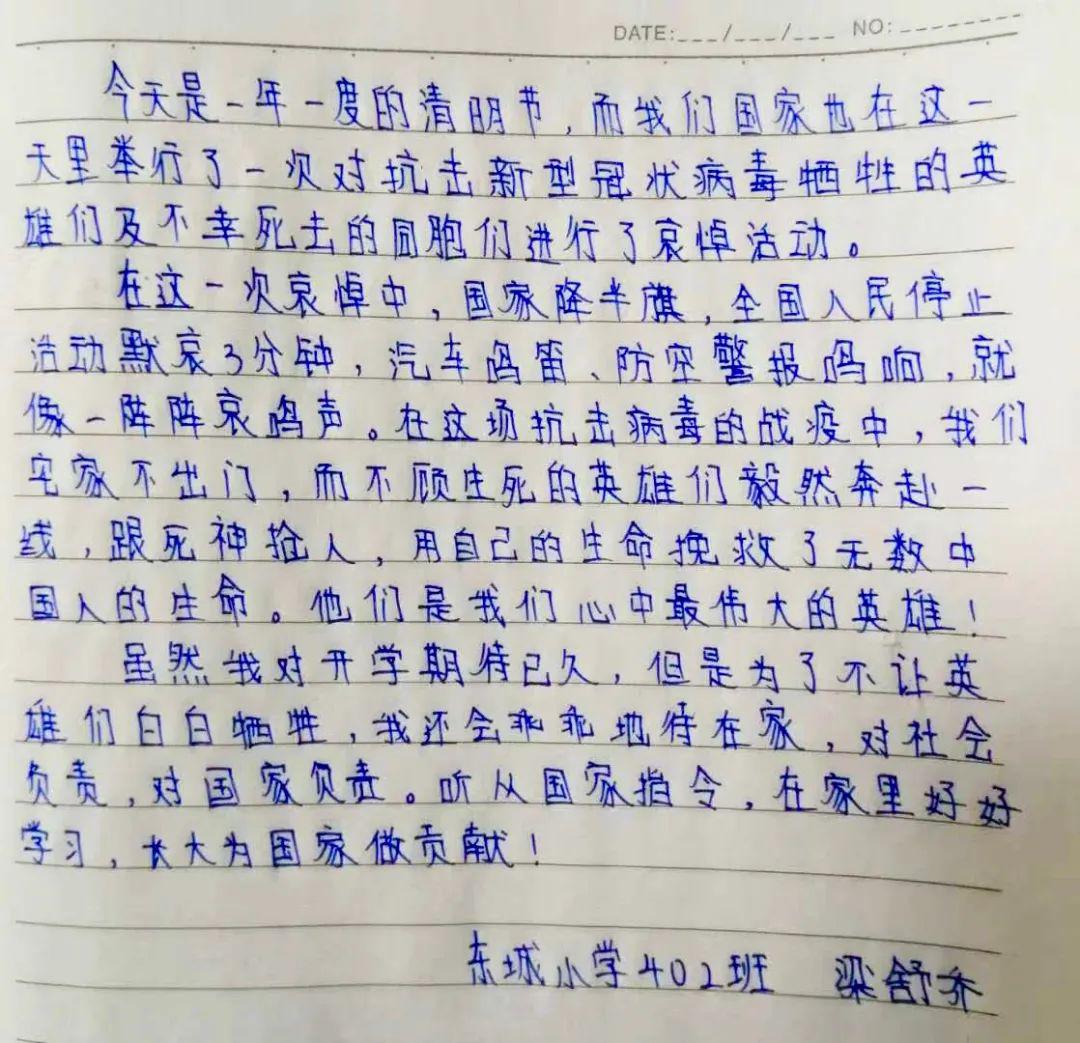 DATE:___/___/___ NO:________
今天是一年一度的清明节，而我们国家也在这一
天里举行了一次对抗击新型冠状病毒牺牲的英
雄们及不幸死去的同胞们进行了哀悼活动。
在这一次哀悼中，国家降半旗，全国人民停止
活动默哀3分钟，汽车鸣笛、防空警报鸣响，就
像一阵阵哀鸣声。在这场抗击病毒的战疫中，我们
宅家不出门，而不顾生死的英雄们毅然奔赴一
线，跟死神抢人，用自己的生命挽救了无数中
国人的生命。他们是我们心中最伟大的英雄！
虽然我对开学期待已久，但是为了不让英
雄们白白牺牲，我还会乖乖地待在家，对社会
负责，对国家负责。听从国家指令，在家里好好
学习，长大为国家做贡献！
东城小学402班 梁舒乔